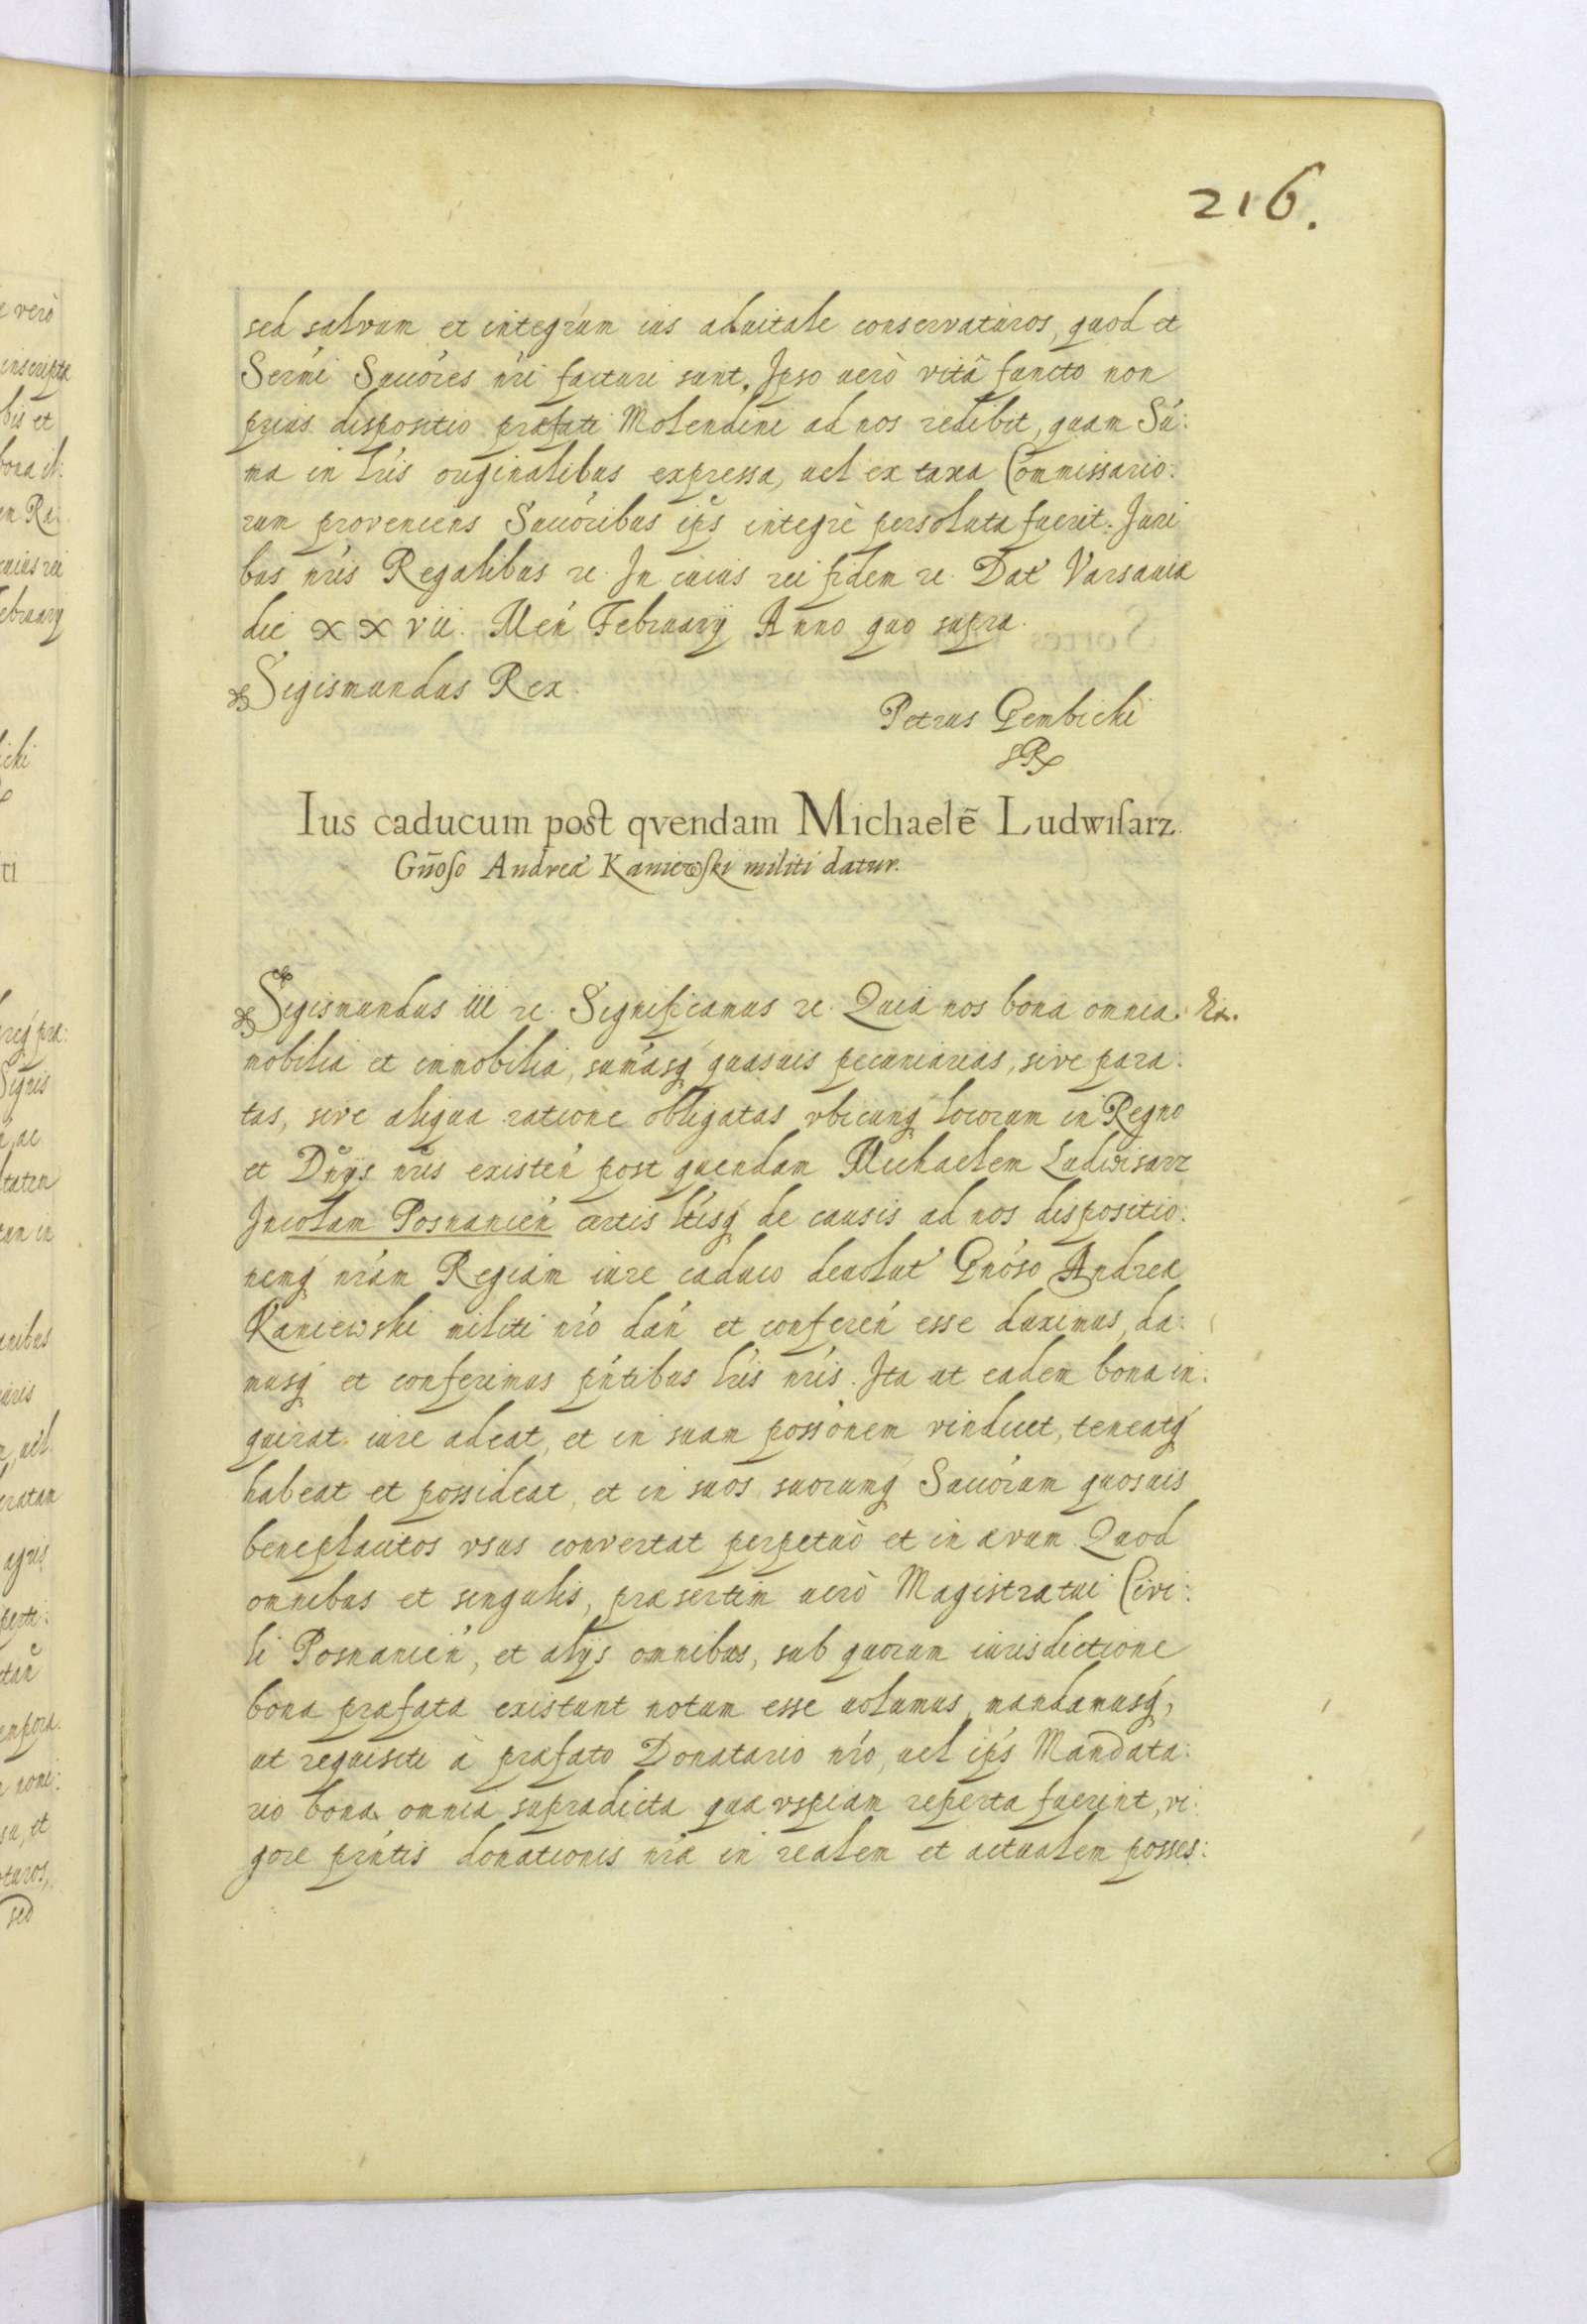 216.
sed salvum et integrum ius aduitale conservaturos, quod et
Serm̃i Succ̃ores nr̃i facturi sunt. Ipso uerò vitâ functo non
prius dispositio præfati Molendini ad nos redibit, quam Su:
ma in lr̃is originalibus expressa, uel ex taxa Commissario:
rum proveniens Succ̃oribus ip̃s integrè persoluta fuerit. Juri
bus nr̃is Regalibus rc. In cuius rei fidem rc. Dat̃ Varsauiæ
die xxvii. Men̄ February Anno quo supra.
Sigismundus Rex.
Petrus Gembicki
SR
Ius caducum post qvendam Michaelē Ludwisarz.
Gñoso Andreæ Kaniewski militi datur.
Sigismundus iii rc. Significamus rc. Quia nos bona omnia Ex.
mobilia et immobilia, sum̃asq́ quasuis pecuniarias, sive para:
tas, sive aliqua ratione obligatas vbicunq́ locorum in Regno
et Dn̄ijs nr̃is existen̄ post quendam Michaelem Ludwisarz
Incolam Posnanien̄ certis ltisq́ de causis ad nos dispositio:
nemq́ nr̃am Regiam iure caduco deuolut̃ Gñoso Andreæ
Kaniewski militi nr̃o dan̄ et conferen̄ esse duximus, da:
musq́ et conferimus pn̄tibus lr̃is nr̃is. Ita ut eadem bona in:
quirat iure adeat, et in suam possõnem vindicet, teneatq́
habeat et possideat, et in suos suorumq́ Succ̃orum quosuis
beneplacitos vsus convertat perpetuò et in ævum. Quod
omnibus et singulis, præsertim uerò Magistratui Civi:
li Posnanien̄, et alijs omnibus, sub quorum iurisdictione
bona præfata existunt notum esse uolumus, mandamusq́,
ut requisiti à præfato Donatario nr̃o, uel ip̃s Mandata:
rio bona omnia supradicta quæ vspiam reperta fuerint, vi:
gore prn̄tis donationis nr̃æ in realem et actualem posses: